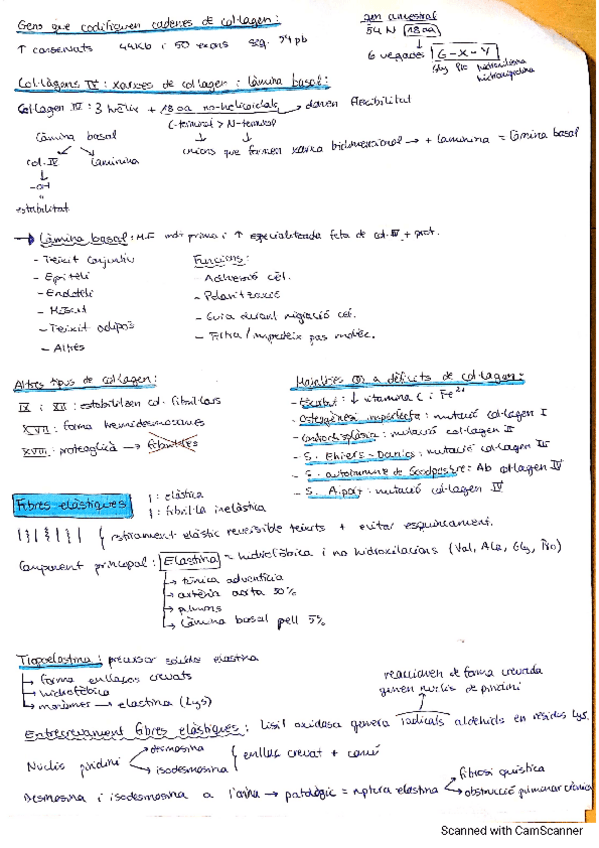 Gens que codifiquen cadenes de col·lagen:
↑ conservats 44Kb i 50 exons seq. 54 pb
gen ancestral
54 N 18 aa
6 vegades G-X-Y
Gly Pro hidroxilisina
hidroxiprolina
Col·làgens IV: xarxes de collagen i làmina basal:
Collagen IV: 3 hèlix + 18 aa no-helicoidals → donen flexibilitat
C-terminal > N-terminal
unions que formen xarxa bidimensional → + laminina = làmina basal
Làmina basal
col. IV laminina
estabilitat
→ Làmina basal: M.E molt prima i ↑ especialitzada feta de col. IV + prot.
- Teixit conjuntiu
- Epiteli
- Endoteli
- Múscul
- Teixit adipós
- Altres
Funcions:
- Adhesió cèl.
- Polarització
- Guia durant migració cèl.
- Filtra / impedeix pas molèc.
Altres tipus de col·lagen:
IX i XII: estabilitzen col. fibril·lars
XVII: forma hemidesmosomes
XVIII: proteoglicà → fibrilles
Malalties x a dèficits de col·lagen:
- Escorbut: ↓ vitamina C i Fe²⁺
- Osteogènesi imperfecta: mutació collagen I
- Condrodisplàsia: mutació col·lagen II
- S. Ehlers-Danlos: mutació collagen III
- S. autoimmune de Goodpasture: Ab collagen IV
- S. Alport: mutació collagen IV
Fibres elàstiques
: elàstica
: fibril·la inelàstica
estirament elàstic reversible teixits + evitar esquinçament.
Component principal: Elastina = hidrofòbica i no hidroxilacions (Val, Ala, Gly, Pro)
→ túnica adventícia
→ artèria aorta 30%
→ pulmons
→ Làmina basal pell 5%
Tropoelastina: precursor soluble elastina
→ forma enllaços creuats
→ hidrofòbica
→ monòmer → elastina (Lys)
reaccionen de forma creuada
generen nuclis de piridini
Entrecreuament fibres elàstiques: Lisil oxidasa genera radicals aldehids en residus Lys.
Nuclis piridini
desmosina
isodesmosina
enllaç creuat + comú
Desmosina i isodesmosina a l'orina → patològic = ruptura elastina
fibrosi quística
obstrucció pulmonar crònica
Scanned with CamScanner